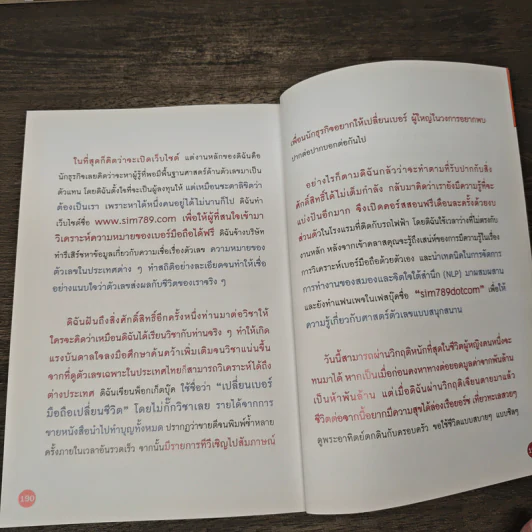 ในที่สุดก็คิดว่าจะเปิดเว็บไซต์ แต่งานหลักของดิฉันคือ
นักธุรกิจเลยคิดว่าจะหาผู้รู้ที่พอมีพื้นฐานศาสตร์ด้านตัวเลขมาเป็น
ตัวแทน โดยดิฉันตั้งใจที่จะเป็นผู้ลงทุนให้ แต่เหมือนชะตาลิขิตว่า
ต้องเป็นเรา เพราะหาได้หนึ่งคนอยู่ได้ไม่นานก็ไป ดิฉันทำ
เว็บไซต์ชื่อ www.sim789.com เพื่อให้ผู้ที่สนใจเข้ามา
วิเคราะห์ความหมายของเบอร์มือถือได้ฟรี ดิฉันจ้างบริษัท
ทำรีเสิร์ชหาข้อมูลเกี่ยวกับความเชื่อเรื่องตัวเลข ความหมายของ
ตัวเลขในประเทศต่าง ๆ ทำสถิติอย่างละเอียดจนทำให้เชื่อ
อย่างแนบใจว่าตัวเลขส่งผลกับชีวิตของเราจริง ๆ
ดิฉันฝันถึงสิ่งศักดิ์สิทธิ์อีกครั้งหนึ่งท่านมาต่อวิชาให้
ใครจะคิดว่าเหมือนดิฉันได้เรียนวิชากับท่านจริง ๆ ทำให้เกิด
แรงบันดาลใจลงมือศึกษาค้นคว้าเพิ่มเติมจนวิชาแน่นขึ้น
จากที่ดูตัวเลขเฉพาะในประเทศไทยก็สามารถวิเคราะห์ได้ถึง
ต่างประเทศ ดิฉันเขียนพ็อกเก็ตบุ๊ค ใช้ชื่อว่า “เปลี่ยนเบอร์
มือถือเปลี่ยนชีวิต” โดยไม่กั๊กวิชาเลย รายได้จากการ
ขายหนังสือนำไปทำบุญทั้งหมด ปรากฏว่าขายดีจนพิมพ์ซ้ำหลาย
ครั้งภายในเวลาอันรวดเร็ว จากนั้นมีรายการทีวีเชิญไปสัมภาษณ์
190
เพื่อนนักธุรกิจอยากให้เปลี่ยนเบอร์ ผู้ใหญ่ในวงการอยากพบ
ปากต่อปากบอกต่อกันไป
อย่างไรก็ตามดิฉันกลัวว่าจะทำตามที่รับปากกับสิ่ง
ศักดิ์สิทธิ์ได้ไม่เต็มกำลัง กลับมาคิดว่าเรายังมีความรู้ที่จะ
แบ่งปันอีกมาก จึงเปิดคอร์สสอนฟรีเดือนละครั้งด้วยงบ
ส่วนตัวในโรงแรมที่ติดกับรถไฟฟ้า โดยดิฉันใช้เวลาว่างที่ไม่ตรงกับ
งานหลัก หลังจากเข้าคลาสคุณจะรู้ถึงเสน่ห์ของการมีความรู้ในเรื่อง
การวิเคราะห์เบอร์มือถือด้วยตัวเอง และนำเทคนิคในการจัดการ
การทำงานของสมองและจิตใต้สำนึก (NLP) มาผสมผสาน
และยังทำแฟนเพจในเฟสบุ๊คชื่อ “sim789dotcom” เพื่อให้
ความรู้เกี่ยวกับศาสตร์ตัวเลขแบบสนุกสนาน
วันนี้สามารถผ่านวิกฤติหนักที่สุดในชีวิตผู้หญิงคนหนึ่งจะ
ทนมาได้ หากเป็นเมื่อก่อนคงหาทางต่อยอดมูลค่าจากพันล้าน
เป็นห้าพันล้าน แต่เมื่อดิฉันผ่านวิกฤติเฉียดตายมาแล้ว
ชีวิตต่อจากนี้อยากมีความสุขได้ล่องเรือยอร์ช เที่ยวทะเลสวยๆ
ดูพระอาทิตย์ตกดินกับครอบครัว ขอใช้ชีวิตแบบสบายๆ แบบชิลๆ